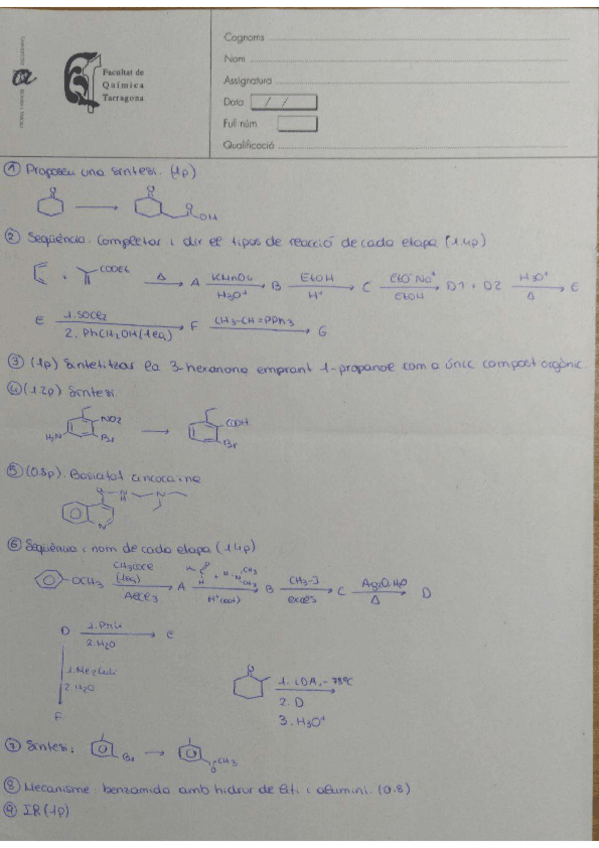 Facultat de
Química
Tarragona
Cognoms
Nom
Assignatura
Data / /
Full núm
Qualificació
① Proposeu una síntesi. (1p)
O O O OH
② Seqüència. Completar i dir el tipus de reacció de cada etapa (1'4p)
+ COOEt Δ A KMnO4 H3O+ B EtOH H+ C EtO-Na+ EtOH D1 + D2 H3O+ Δ E
E 1. SOCl2 2. PhCH2OH (1eq) F CH3-CH=PPh3 G
③ (1p) Sintetitzar la 3-hexanona emprant 1-propanol com a únic compost orgànic
④ (1'2p) Síntesi
NO2 H2N Br COOH Br
⑤ (0.8p). Basicitat cincocaïna
O N H N N
⑥ Seqüència i nom de cada etapa (1'4p)
OCH3 CH3COCl (1eq) AlCl3 A H O H + H-N CH3 CH3 H+ (cat) B CH3-I excés C Ag2O, H2O Δ D
D 1. PhLi 2. H2O E
1. Me2CuLi
2. H2O
F
O 1. LDA, -78ºC
2. D
3. H3O+
⑦ Síntesi: Br O CH3
⑧ Mecanisme: benzamida amb hidrur de liti i alumini. (0.8)
⑨ IR (1p)